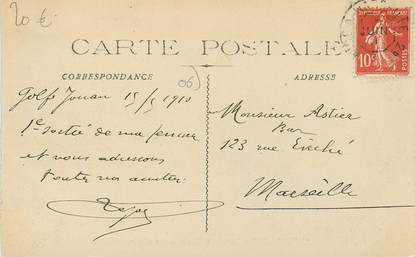 20 €
CARTE POSTALE
CORRESPONDANCE
06
ADRESSE
Golfe Jouan 15/5 1910
1e sortie de ma femme
et vous adressons
toutes nos amitiés
Monsieur Astier
Bar
123 rue Evêché
Marseille
POSTES
10